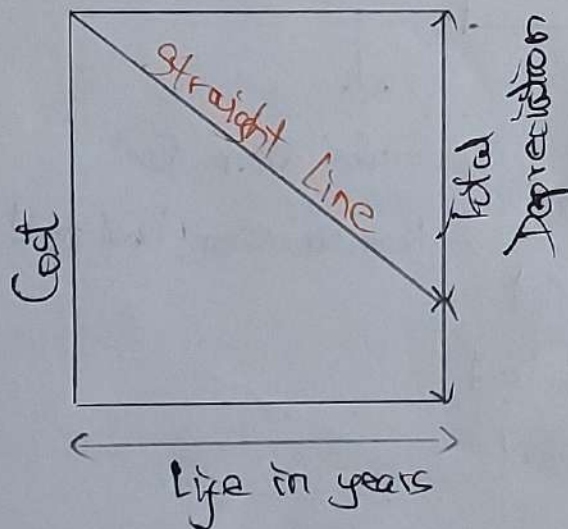 straight Line
Cost
Total
Depreciation
Life in years